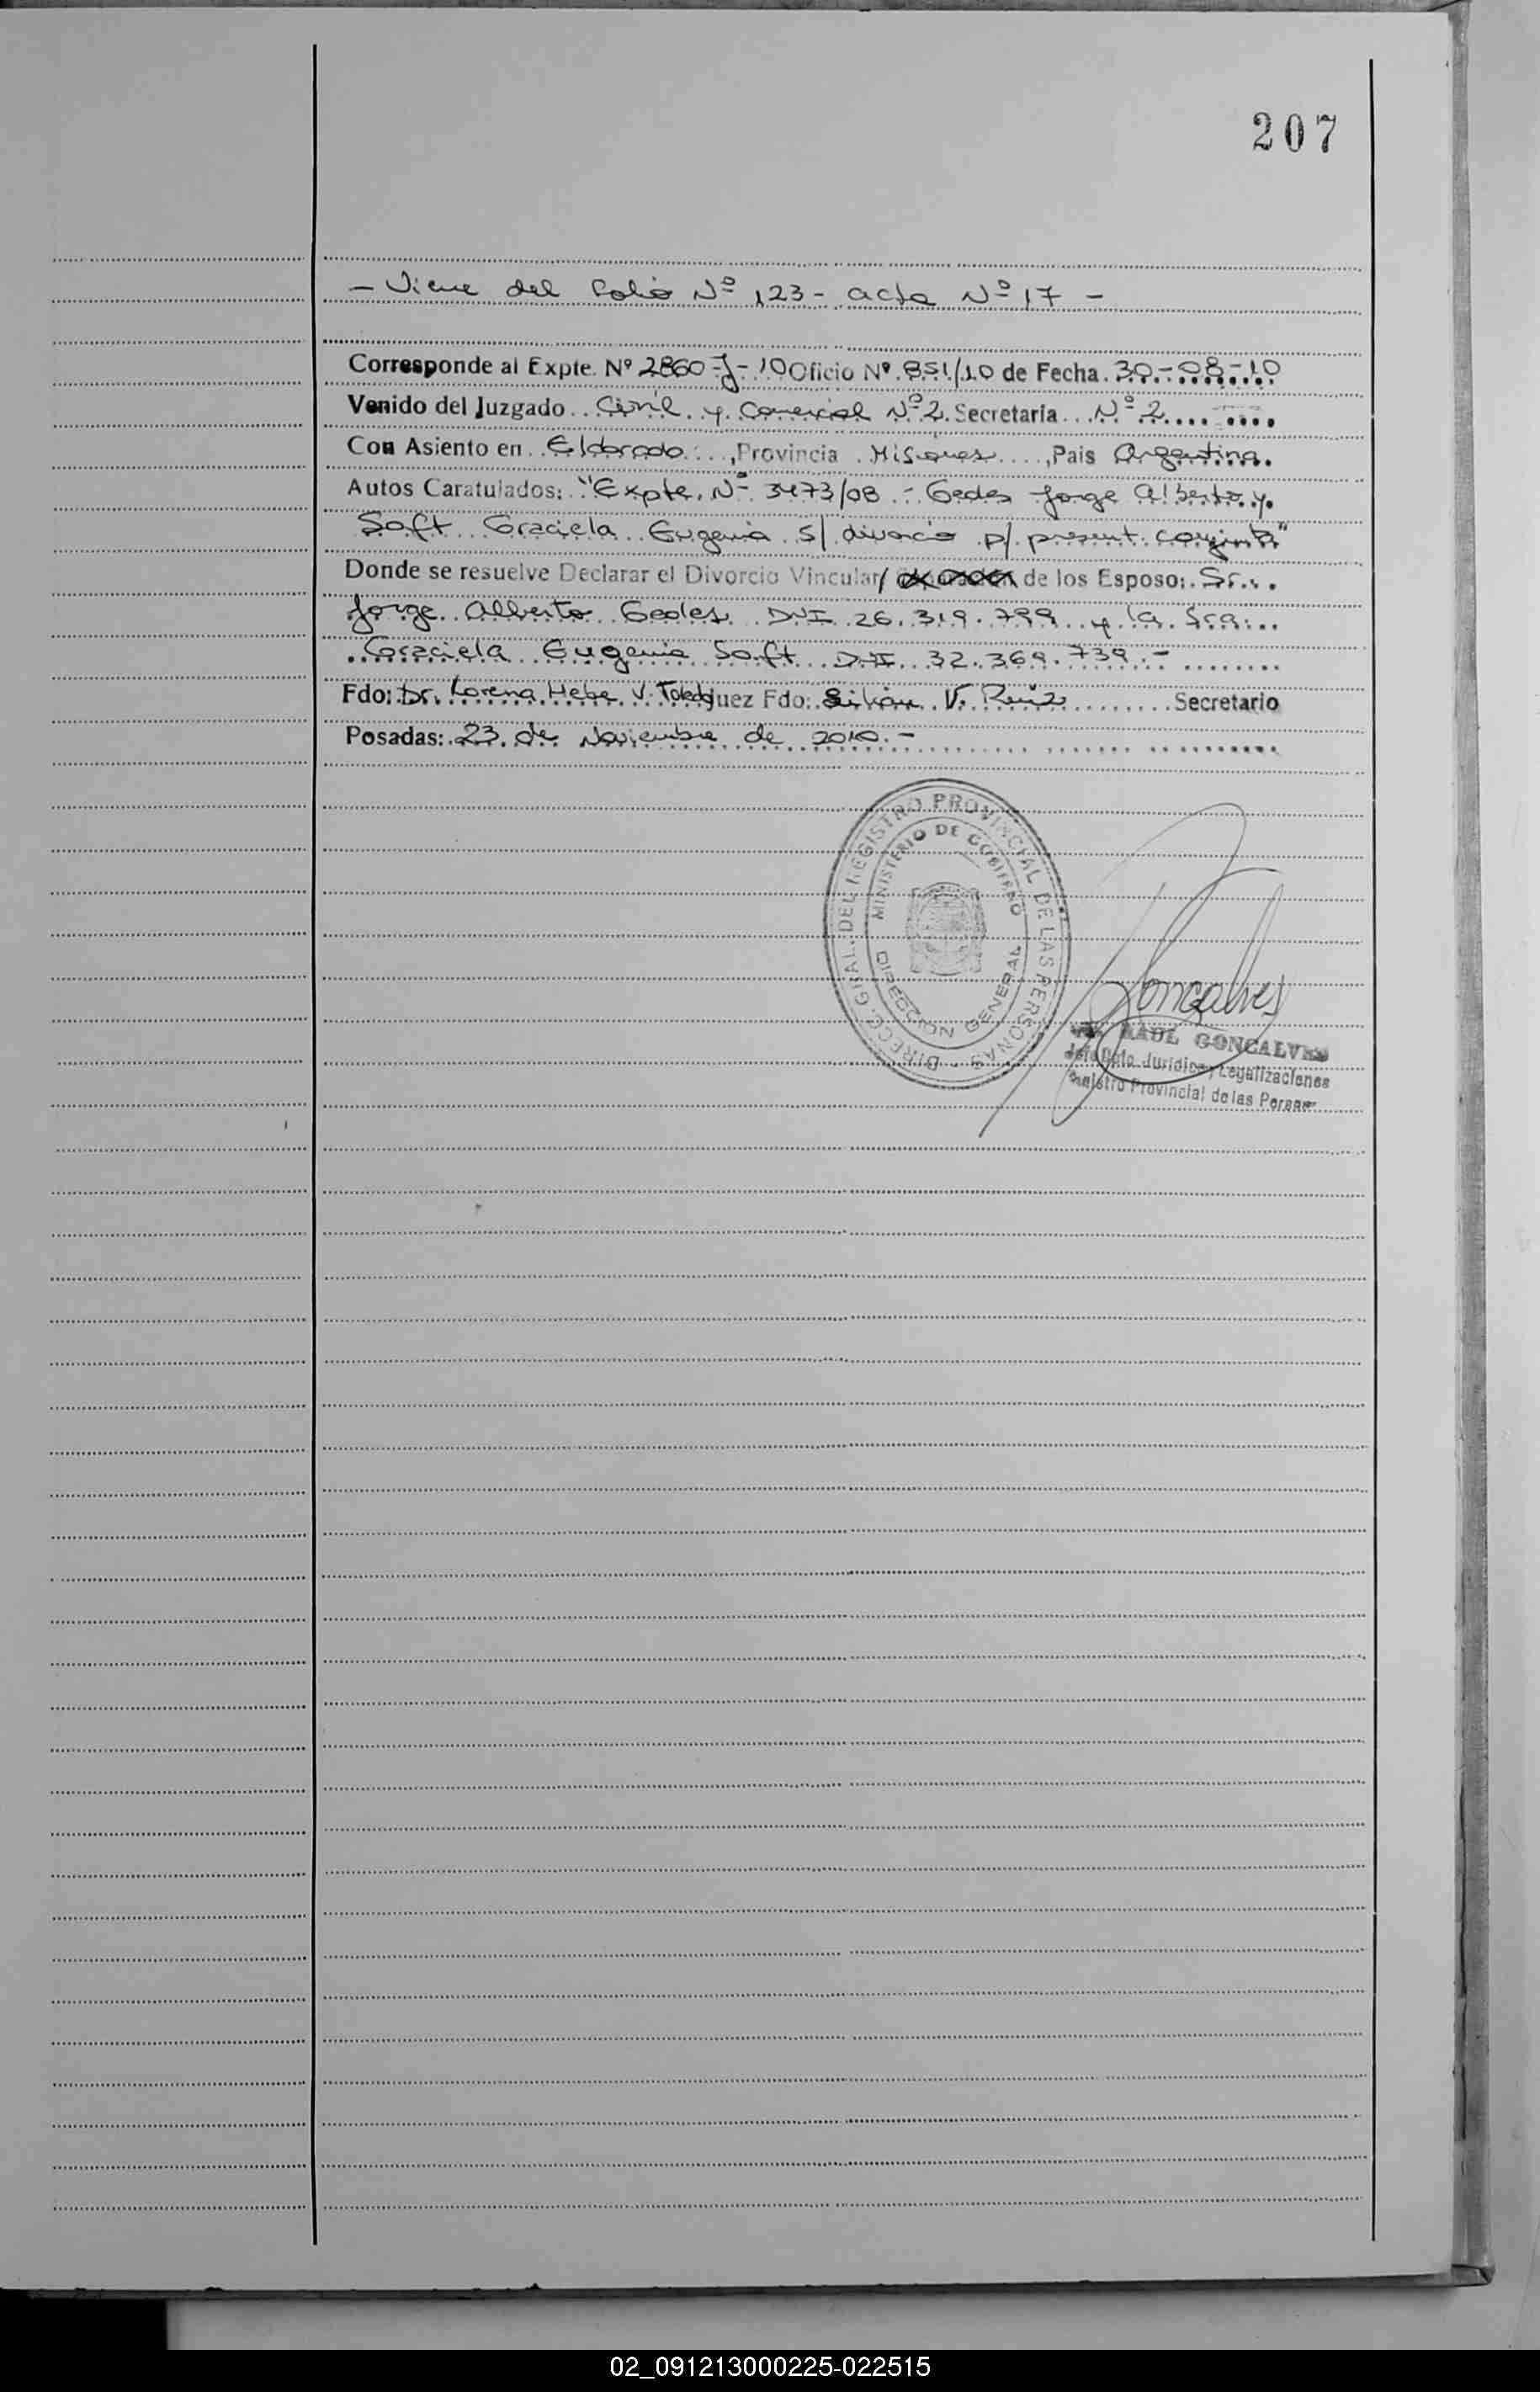 207
- Viene del Folio Nº 123 - acta Nº 17 -
Corresponde al Expte. Nº 2860-J-10 Oficio Nº 851/10 de Fecha 30-08-10
Venido del Juzgado Civil y Comercial Nº 2. Secretaría Nº 2
Con Asiento en Eldorado, Provincia Misiones, Pais Argentina.
Autos Caratulados: "Expte. Nº 3473/08 - Gedes Jorge Alberto y
Soft Graciela Eugenia s/ divorcio p/ present. conjunta"
Donde se resuelve Declarar el Divorcio Vincular/ de los Esposo: Sr.
Jorge Alberto Gedes DNI 26.319.799 y la Sra.
Graciela Eugenia Soft DNI 32.369.739.-
Fdo: Dr. Lorena Hebe V. Toledo Juez Fdo: Silvia V. Ruiz Secretario
Posadas: 23 de Noviembre de 2010.-
DIRECC. GRAL. DEL REGISTRO PROVINCIAL DE LAS PERSONAS
MINISTERIO DE GOBIERNO
DIRECCION GENERAL
Goncalves
RAUL GONCALVES
Jefe Dpto. Juridico y Legalizaciones
Registro Provincial de las Person
02_091213000225-022515